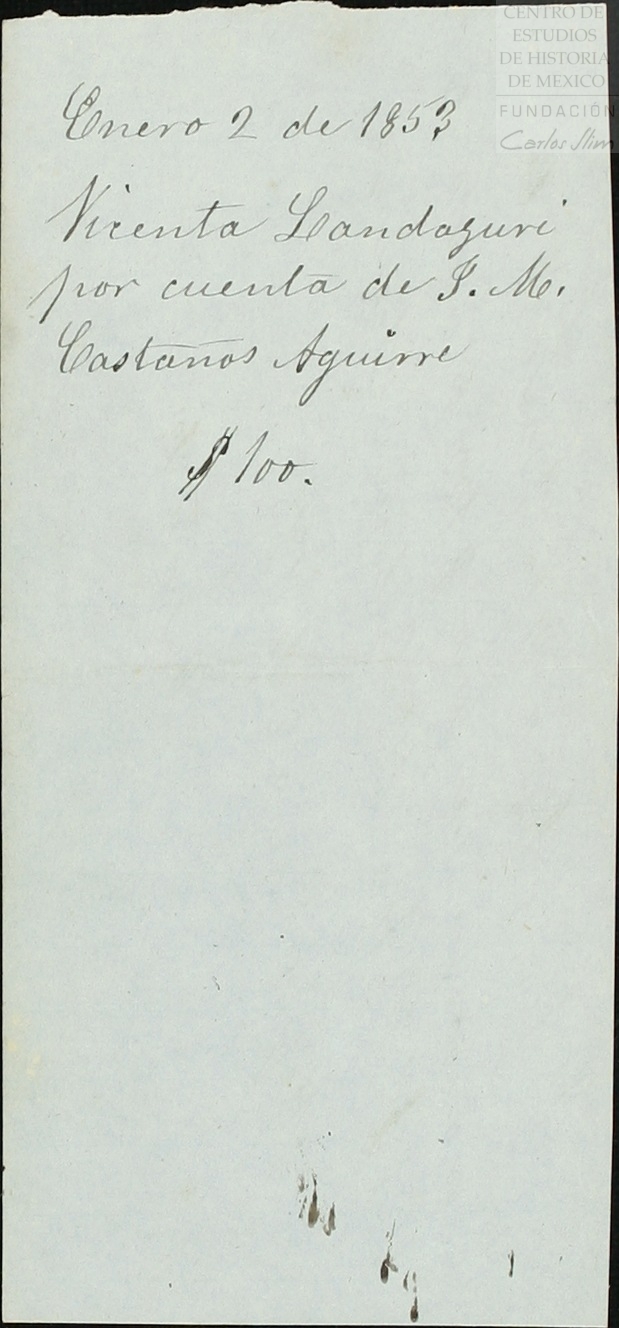 CENTRO DE
ESTUDIOS
DE HISTORIA
DE MEXICO
FUNDACIÓN
Carlos Slim
Enero 2 de 1853
Vicenta Landaguri
por cuenta de J. M.
Castaños Aguirre
$ 100.